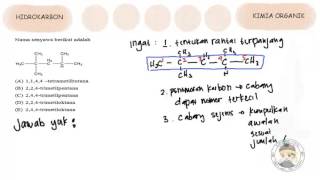 HIDROKARBON
KIMIA ORGANIK
Nama senyawa berikut adalah
CH₃ CH₃
H₃C
CH₃
(A) 1,1,4,4 -tetrametilbutana
(B) 2,2,4-trimetilpentana
(C) 2,4,4-trimetilpentana
(D) 2,2,4-trimetiloktana
(E) 2,4,4-trimetiloktana
Jawab yuk :
Ingat : 1. tentukan rantai terpanjang
CH₃ CH₃
H₃C - C - C - C - CH₃
CH₃ H
2. penomoran karbon → cabang
dapat nomor terkecil
3. cabang sejenis → kumpulkan
awalan
sesuai
jumlah